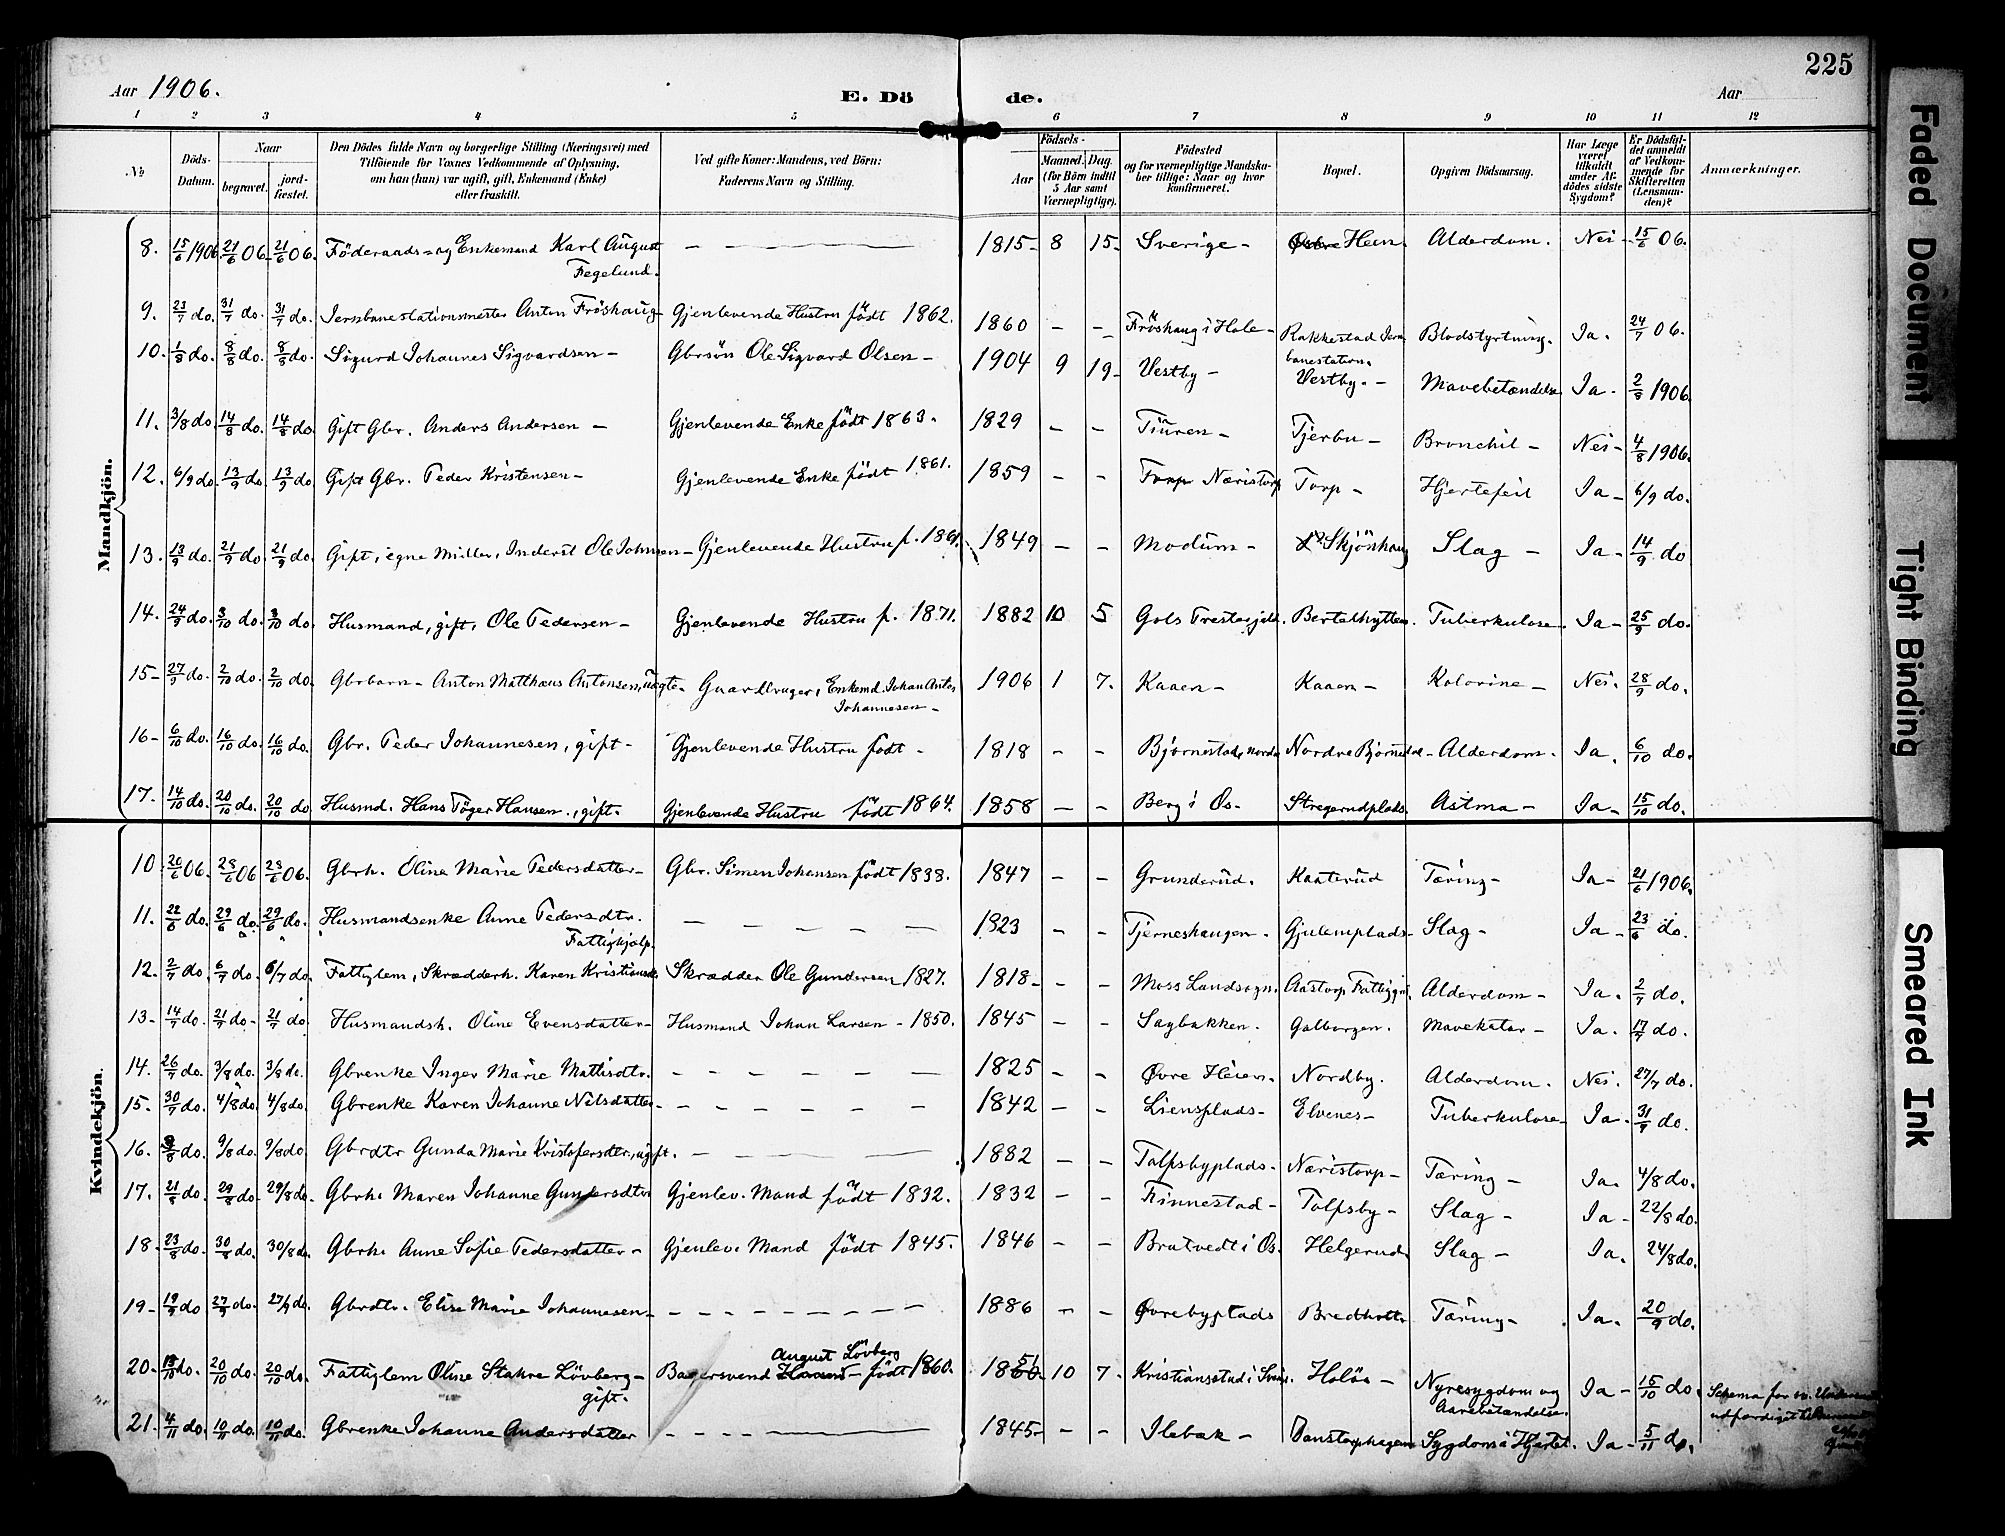 225
Aar 1906.
E. Dö de.
Aar
1 2 3 4 5 6 7 8 9 10 11 12
No
Döds-Datum.
Naar
begravet.
jord-fæstet.
Den Dödes fulde Navn og borgerlige Stilling (Næringsvei) med
Tilföiende for Voxnes Vedkommende af Oplysning,
om han (hun) var ugift, gift, Enkemand (Enke)
eller fraskilt.
Ved gifte Koner: Mandens, ved Börn:
Faderens Navn og Stilling.
Födsels-
Aar
Maaned. Dag.
(for Börn indtil
5 Aar samt
Værnepligtige).
Födested
og for værnepligtige Mandska-
ber tillige: Naar og hvor
konfirmeret.
Bopæl.
Opgiven Dödsaarsag.
Har Læge
været
tilkaldt
under Af-
dödes sidste
Sygdom?
Er Dödsfal-
det anmeldt
af Vedkom-
mende for
Skifteretten
(Lensman-
den)?
Anmærkninger.
Mandkjön.
8. 15/6 1906. 21/6 06. 21/6 06. Föderaads- og Enkemand Karl August — — 1815 - 8 15 - Sverige - Heen. Alderdom. Nei - 15/6 06.
Fegelund.
9. 23/7 do. 31/7 do. 31/7 do. Jernbanestationsmester Anton Fröshaug - Gjenlevende Hustru født 1862. 1860 - - Fröshaug i Hole - Rakkestad Jern Blodstyrtning. Ja. 24/7 06.
banestation.
10. 1/8 do. 8/8 do. 8/8 do. Sigurd Johannes Sigvardsen - Gbrsön Ole Sigvard Olsen - 1904 9 19 - Vestby - Vestby. - Mavebetændelse Ja - 2/8 1906.
11. 3/8 do. 14/8 do. 14/8 do. Gift Gbr. Anders Andersen - Gjenlevende Enke født 1863. 1829 - - Tiuren - Tjerbu - Bronchit - Nei - 4/8 1906.
12. 6/9 do. 13/9 do. 13/9 do Gift Gbr. Peder Kristensen - Gjenlevende Enke født 1861. 1859 - - Torp Næristorp Torp - Hjertefeil Ja - 6/9 do.
13. 13/9 do. 21/9 do 21/9 do. Gift, egne Midler, Inderst Ole Johnsen - Gjenlevende Hustru f. 1849 - - Modum - Skjönhaug Slag - Ja - 14/9 do
14. 24/9 do. 3/10 do. 3/10 do. Husmand, gift, Ole Pedersen - Gjenlevende Hustru f. 1871. 1882 10 5 Gols Prestegjeld. Tuberkulose Ja - 25/9 do.
15 - 27/9 do. 2/10 do. 2/10 do. Gbrbarn - Anton Matthæus Antonsen, uægte. Gaardbruger, Enkemd. Johan Anton 1906 1 7. Kaaen - Kaaen - Kolorine - Nei. 28/9 do.
Johannesen -
16 - 6/10 do. 16/10 do. 16/10 do. Gbr. Peder Johannesen, gift - Gjenlevende Hustru født - 1818 - - Björnestad, nordre Nordre Björnestad - Alderdom. Ja. 6/10 do.
17. 14/10 do. 20/10 do. 20/10 do Husmd. Hans Töger Hansen, gift. Gjenlevende Hustru født 1864. 1858 - - Berg i Øs - Stregerudplads. Astma - Ja - 15/10 do.
Kvindekjön.
10 20/6 06. 28/6 06 28/6 06. Gbrh. Oline Marie Pedersdatter - Gbr. Simen Johansen født 1838. 1847 - - Grunderud. Kaaterud Tæring - Ja - 21/6 1906.
11. 22/6 do. 29/6 do. 29/6 do. Husmandsenke Anne Pedersdtr. — — — 1823 - - Tjerneshaugen. Gjulemplads - Slag - Ja - 23/6 do.
Fattighjælp.
12. 2/7 do. 6/7 do. 6/7 do. Fattiglem, Skrædderh. Karen Kristiansd. Skrædder Ole Gundersen 1827. 1818 - - - Moss Landsogn. Aastorp Fattiggrd. Alderdom - Ja. 2/7 do.
13 - 14/7 do. 21/7 do - 21/7 do. Husmandsh. Oline Evensdatter - Husmand Johan Larsen - 1850. 1845 - - Sagbakken. Galborgen. Mavekatar - Ja. 17/7 do.
14. 26/7 do. 3/8 do. 3/8 do. Gbrenke Inger Marie Mattisdtr. - - - - - 1825 - - Øvre Heien. Nordby. Alderdom. Nei. 27/7 do.
15. 30/7 do. 4/8 do. 4/8 do. Gbrenke Karen Johanne Nilsdatter - - - - - 1842 - - Liensplads - Elvenes - Tuberkulose - Ja. 31/7 do.
16. 3/8 do. 9/8 do. 9/8 do Gbrdtr Gunda Marie Kristofersdtr, ugift. - — — 1882 - - Tolfsbyplads - Næristorp - Tæring - Ja. 4/8 do.
17. 21/8 do. 29/8 do. 29/8 do. Gbrh. Maren Johanne Gundersdtr Gjenlev. Mand født 1832. 1832 - - Finnestad - Tolfsby - Slag - Ja - 22/8 do.
18 - 23/8 do. 30/8 do. 30/8 do. Gbrh. Anne Sofie Pedersdatter - Gjenlev. Mand født 1845. 1846 - - Bratvedt i Øs. Helgerud Slag - Ja. 24/8 do.
19 - 19/9 do 27/9 do. 27/9 do. Gbrdtr. Elise Marie Johannesen - - - - - 1886 - - Øvrebyplads Bredholt Tæring - Ja. 20/9 do.
August Lövberg
20 - do. 20/10 do. 20/10 do. Fattiglem Oline Stakre Lövberg - Bagersvend født 1860. 1851 10 7. Kristiansstad i Sverig. Holös - Nyresygdom og Ja - 15/10 do. Schema for
gift. Aarebetændelse. udfærdiget
21. 4/11 do. 10/11 do. 10/11 do. Gbrenke Johanne Andersdatter - - - - 1845 - - - Ilebæk - Danstorphagen Sygdom i Hjertet. Ja - 5/11 do.
Faded Document
Tight Binding
Smeared Ink